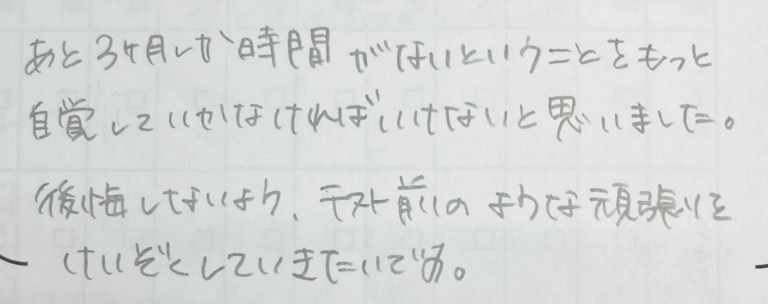 あと3ヶ月しか時間がないということをもっと
自覚していかなければいけないと思いました。
後悔しないよう、テスト前のような頑張りを
けいぞくしていきたいです。